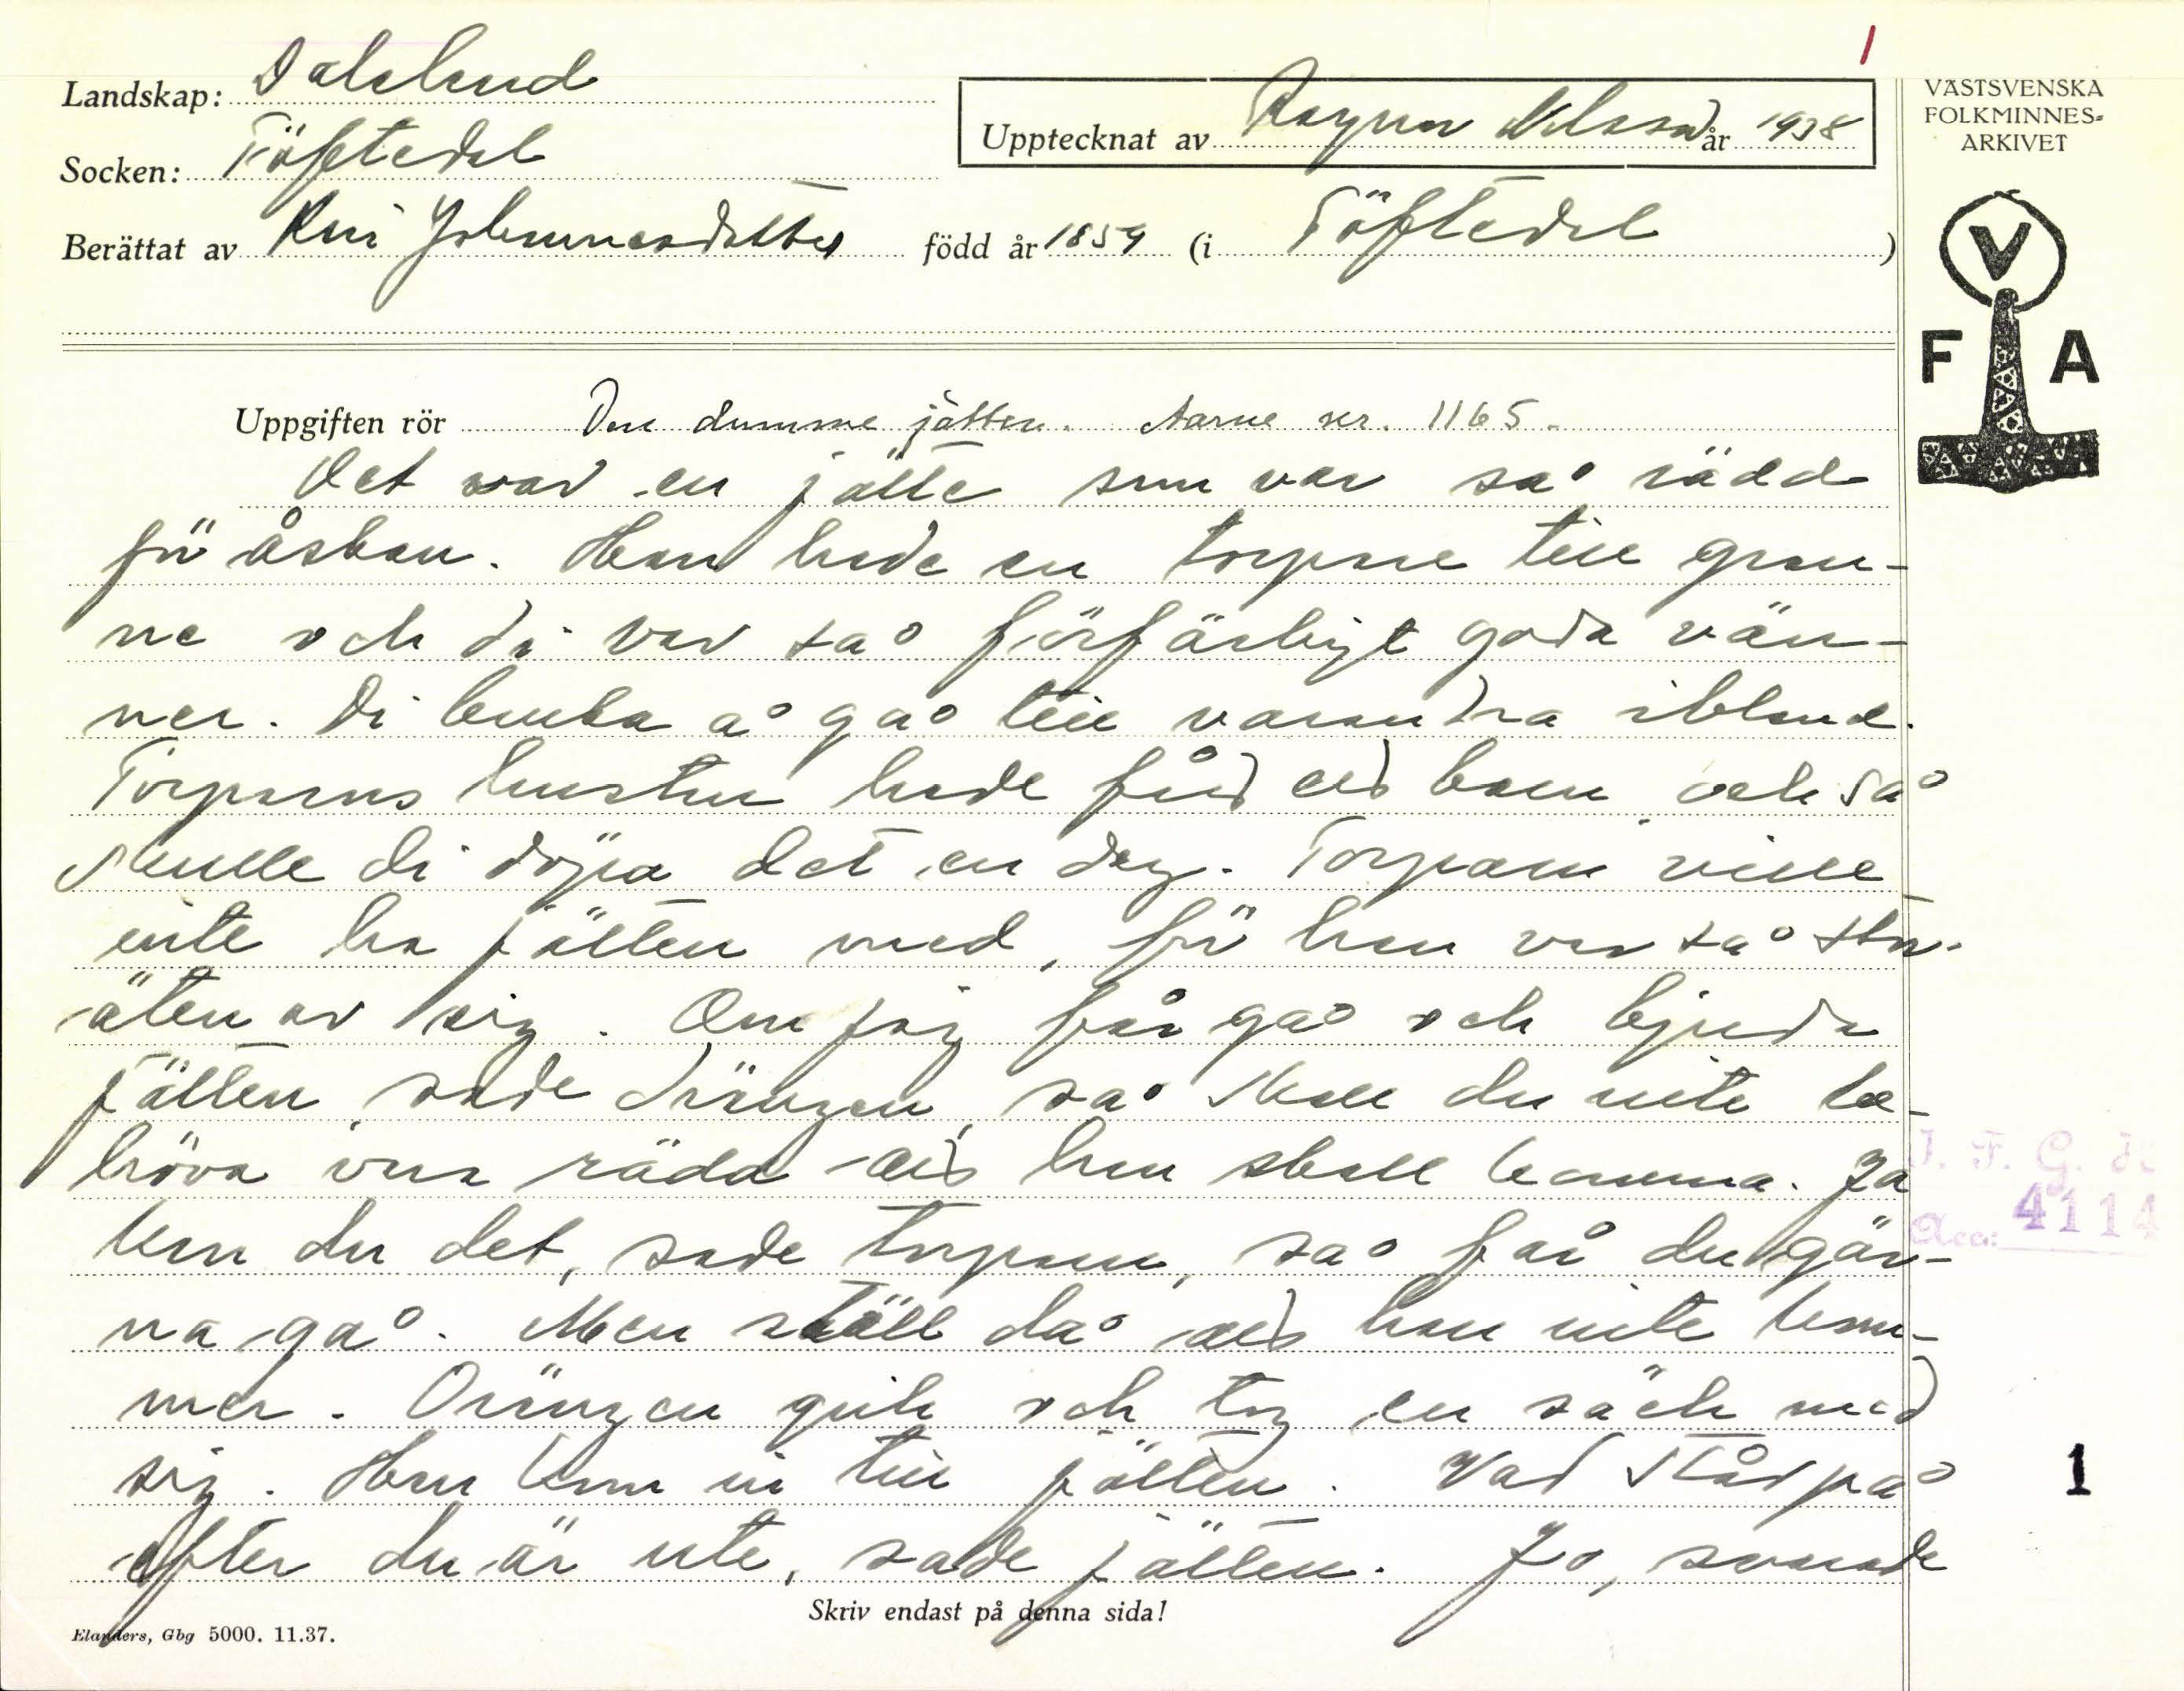 1
Landskap: Dalsland
VÄSTSVENSKA
FOLKMINNES-
ARKIVET
Upptecknat av Ragnar Nilsson år 1938
Socken: Töftedal
Berättat av Kari Johannesdotter född år 1859 (i Töftedal)
V
F A
Uppgiften rör Den dumme jätten. Aarne nr. 1165.
Det var en jätte som var så rädd
för åskan. Han hade en torpare till gran-
ne och di var så förfärligt goda vän-
ner. Di bruka å gå till varandra ibland.
Torparns hustru hade fåd ed barn och så
skulle di döpa det en dag. Torparn ville
inte ha jätten med, för han var så stor-
äten av sig. Om jag får gå och bjuda
jätten, sade drängen, så skall du inte be-
höva vara rädd ad han skall komma. Ja
kan du det, sade torparn, så får du gär-
na gå. Men ställ då ad han inte kom-
mer. Drängen gick och tog en säck med
sig. Han kom in till jätten. Vad står på
efter du är ute, sade jätten. Jo, svarade
I. F. G. H.
Acc: 4114
1
Skriv endast på denna sida!
Elanders, Gbg 5000. 11.37.